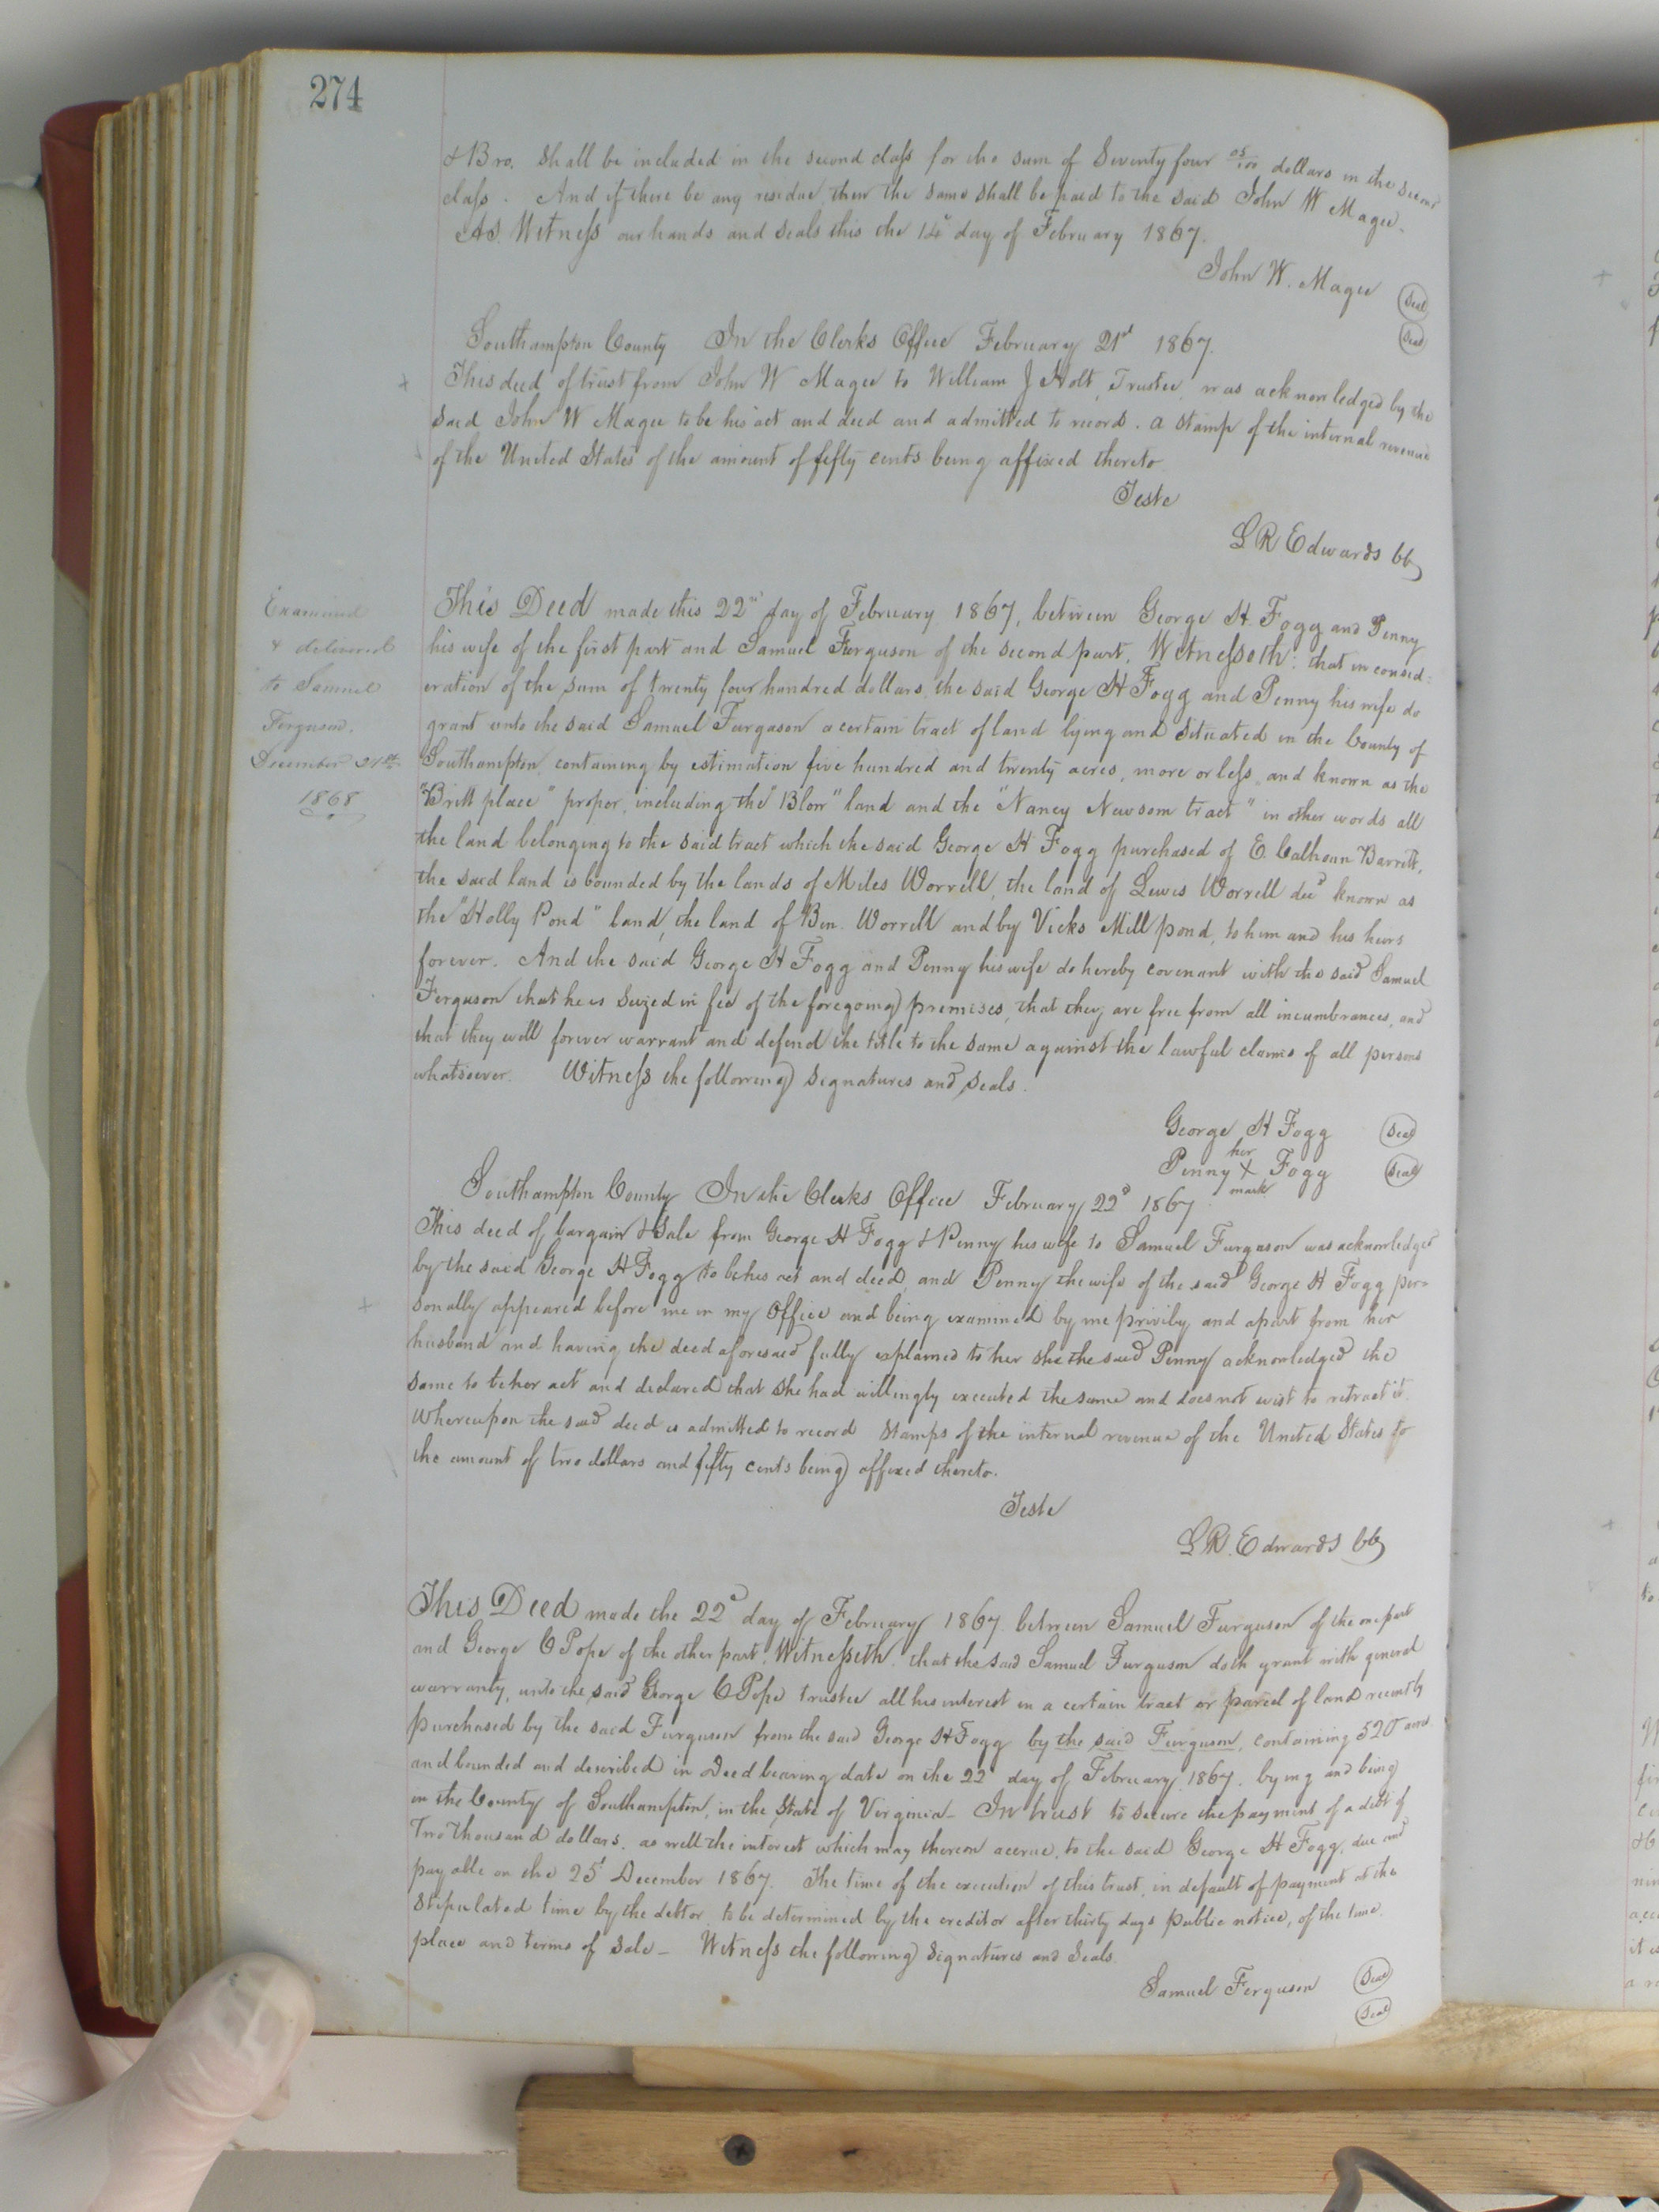 274
& Bro. Shall be included in the second class for the sum of Seventy four 05/100 dollars in the second
class. And if there be any residue then the same shall be paid to the said John W Magee.
As Witness our hands and seals this the 14 day of February 1867.
John W. Magee Seal
Seal
Southampton County In the Clerks Office February 21st 1867.
This deed of trust from John W Magee to William J Holt, Trustee, was acknowledged by the
said John W Magee to be his act and deed and admitted to record. a stamp of the internal revenue
of the United States of the amount of fifty cents being affixed thereto
Teste
L R Edwards CC
Examined
& delivered
to Samuel
Ferguson.
December 21st
1868
This Deed made this 22nd day of February 1867, between George H. Fogg and Penny
his wife of the first part and Samuel Furguson of the second part, Witnesseth: that in consid-
eration of the sum of twenty four hundred dollars, the said George H Fogg and Penny his wife do
grant unto the said Samuel Furguson a certain tract of land lying and situated in the County of
Southampton, containing by estimation five hundred and twenty acres, more or less, and known as the
"Britt place" proper, including the "Blow" land and the "Nancy Newsom tract" in other words all
the land belonging to the said tract which the said George H Fogg purchased of E. Calhoun Barrett,
the said land is bounded by the lands of Miles Worrell, the land of Lewis Worrell decd known as
the "Holly Pond" land, the land of Ben. Worrell and by Vicks Mill pond, to him and his heirs
forever. And the said George H Fogg and Penny his wife do hereby covenant with the said Samuel
Ferguson that he is Seized in fee of the foregoing premises, that they are free from all incumbrances, and
that they will forever warrant and defend the title to the same against the lawful claims of all persons
whatsoever. Witness the following signatures and seals.
George H Fogg Seal
her
Penny X Fogg Seal
mark
Southampton County In the Clerks Office February 22d 1867
This deed of bargain & Sale from George H Fogg & Penny his wife to Samuel Furguson was acknowledged
by the said George H Fogg to be his act and deed, and Penny the wife of the said George H Fogg per-
sonally appeared before me in my Office and being examined by me privily and apart from her
husband and having the deed aforesaid fully explained to her she the said Penny acknowledged the
same to be her act and declared that she had willingly executed the same and does not wist to retract it.
Whereupon the said deed is admitted to record Stamps of the internal revenue of the United States to
the amount of two dollars and fifty cents being affixed thereto.
Teste
L R. Edwards CC
This Deed made the 22d day of February 1867 between Samuel Furguson of the one part
and George C Pope of the other part, Witnesseth, that the said Samuel Furguson doth grant with general
warranty, unto the said George C Pope trustee all his interest in a certain tract or parcel of land recently
purchased by the said Furguson from the said George H Fogg by the said Furguson, containing 520 acres
and bounded and described in Deed bearing date on the 22d day of February 1867. lying and being
in the County of Southampton, in the State of Virginia - In trust to secure the payment of a debt of
Two thousand dollars, as well the interest which may thereon accrue, to the said George H Fogg, due and
payable on the 25 December 1867. The time of the execution of this trust, in default of payment at the
stipulated time by the debtor, to be determined by the creditor after thirty days public notice, of the time
place and terms of sale - Witness the following signatures and seals.
Samuel Ferguson Seal
Seal